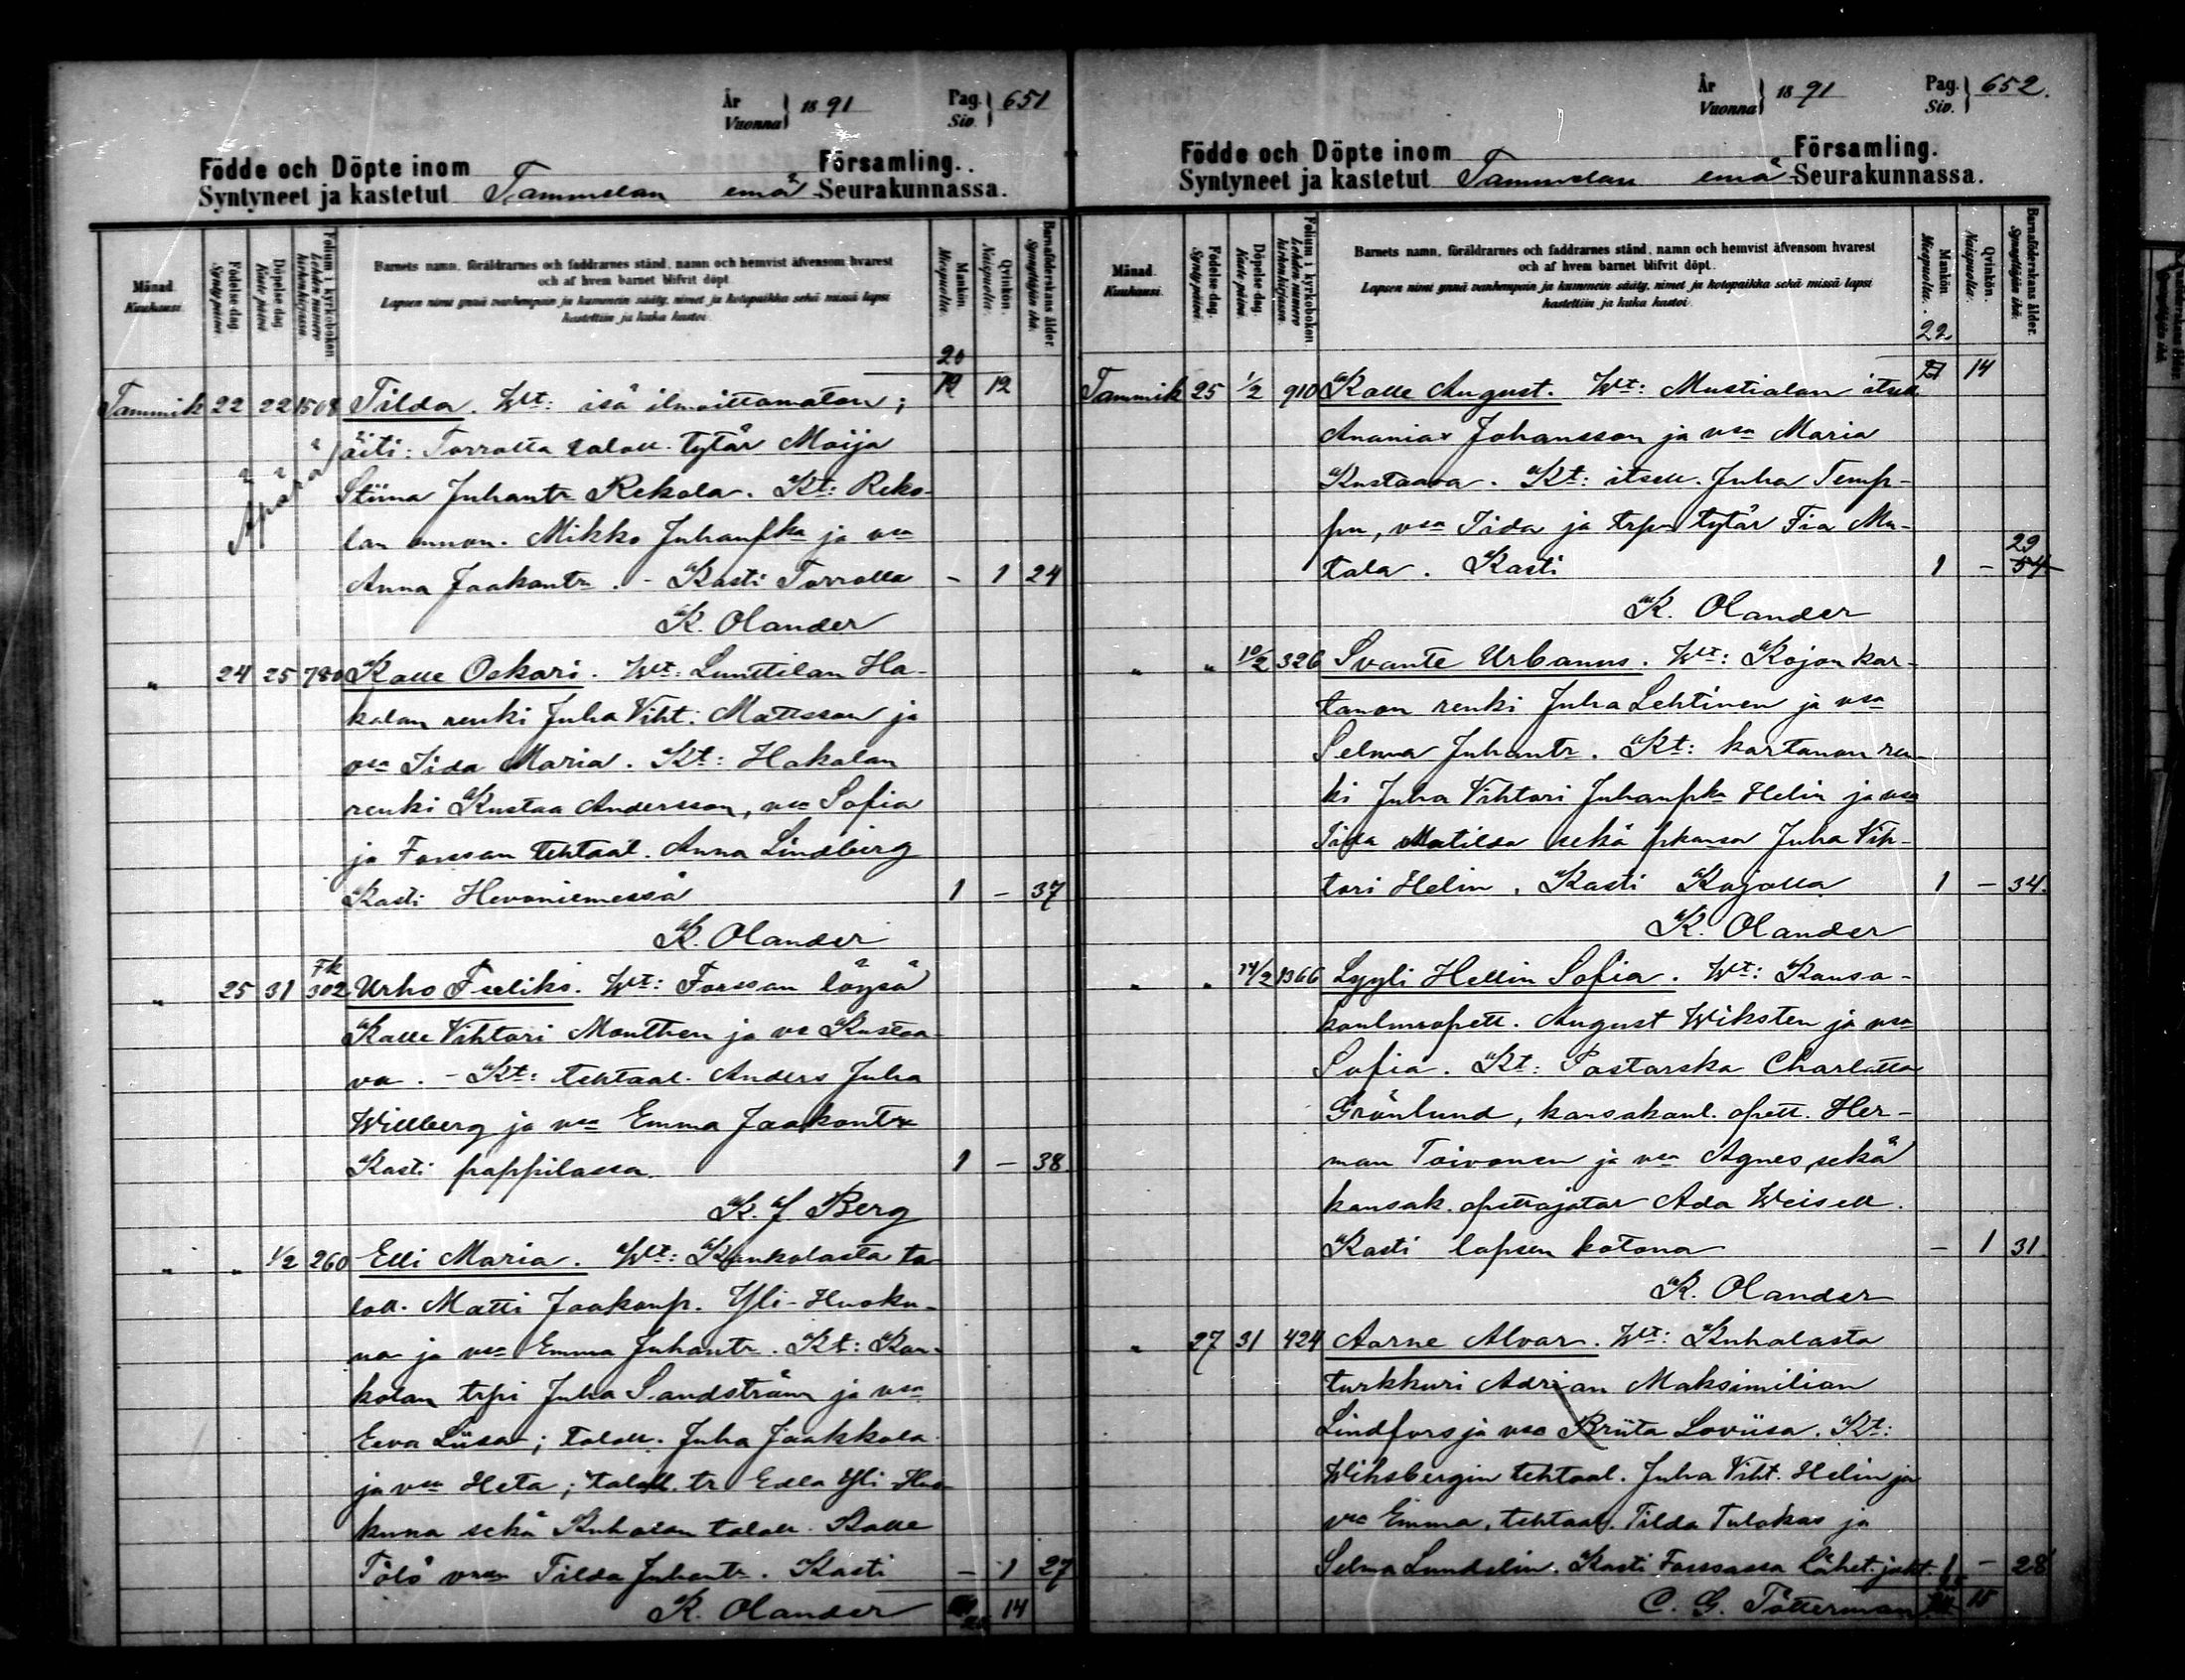 År
Vuonna } 1891
Pag.
Siv. } 651
Födde och Döpte inom Församling.
Syntyneet ja kastetut Tammelan emä Seurakunnassa.
Månad. Kuukausi.
Födelse dag. Synty päivä
Döpelse dag. Kaste päivä
Folium i kyrkoboken. Lehden numero kirkonkirjassa
Barnets namn, föräldrarnes och faddrarnes stånd, namn och hemvist äfvensom hvarest
och af hvem barnet blifvit döpt.
Lapsen nimi ynnä vanhempain ja kummein sääty, nimet ja kotopaikka sekä missä lapsi
kastettiin ja kuka kastoi.
Mankön. Miespuolta.
Qvinkön. Naispuolta.
Barnaföderskans ålder. Synnyttäjän ikä.
20
19 12
Tammik 22 22 1508 Tilda. Wt: isä ilmoittamaton;
Äpärä äiti: Torrolta taloll. tytär Maija
Stiina Juhantr Rekola. Kt: Reko-
lan Mikko Juhanpka ja vsa
Anna Jaakontr. - Kasti Torrolla - 1 24
K. Olander
" 24 25 780 Kalle Oskari. Wt: Lunttilan Ha-
kalan renki Juha Viht: Mattsson ja
vsa Iida Maria. Kt: Hakalan
renki Kustaa Andersson, vsa Sofia
ja Forssan tehtaal. Anna Lindberg
Kasti Hevoniemessä 1 - 37
K. Olander
" 25 31 Fk 302 Urho Feeliks. Wt: Forssan löysä
Kalle Vihtori Monthen ja vs Kustaa-
va. - Kt: tehtaal. Anders Juha
Willberg ja vsa Emma Jaakontr
Kasti pappilassa. 1 - 38
K. J Berg
" " 1/2 260 Elli Maria. Wt: Kankolasta ta-
loll. Matti Jaakonp. Yli-Huoku-
na ja vsa Emma Juhantr. Kt: Kan-
kolan trpi Juha Sandström ja vsa
Eeva Liisa; taloll. Juha Jaakkola
ja vsa Heta; taloll. tr Edla Yli-Huo-
kuna sekä Kuhalan taloll. Kalle
Tölö Tilda Juhantr. Kasti - 1 27
K. Olander 14
År
Vuonna } 1891
Pag.
Siv. } 652.
Födde och Döpte inom Församling.
Syntyneet ja kastetut Tammelan emä Seurakunnassa.
Månad. Kuukausi.
Födelse dag. Synty päivä.
Döpelse dag. Kaste päivä.
Folium i kyrkoboken. Lehden numero kirkonkirjassa.
Barnets namn, föräldrarnes och faddrarnes stånd, namn och hemvist äfvensom hvarest
och af hvem barnet blifvit döpt.
Lapsen nimi ynnä vanhempain ja kummein sääty, nimet ja kotopaikka sekä missä lapsi
kastettiin ja kuka kastoi.
Mankön. Miespuolta.
Qvinkön. Naispuolta.
Barnaföderskans ålder. Synnyttäjän ikä.
22
21 14
Tammik 25 1/2 910 Kalle August. Wt: Mustialan itsell.
Ananias Johansson ja vsa Maria
Kustaava. Kt: itsell. Juha Temp-
pu, vsa Iida ja trpn tytär Fia Mu-
29
tala. Kasti 1 - 54
K. Olander
" " 10/2 326 Svante Urbanus. Wt: Kojon kar-
tanon renki Juha Lehtinen ja vsa
Selma Juhantr. Kt: kartanon ren-
ki Juha Vihtori Juhanpka Helin ja vsa
Iida Matilda sekä pkansa Juha Vih-
tori Helin. Kasti Kojolla 1 - 34.
K. Olander
" " 14/2 1366 Lyyli Hellin Sofia. Wt: Kansa-
koulunopett. August Wiksten ja vsa
Sofia. Kt: Pastorska Charlotta
Grönlund, kansakoul. opett. Her-
man Toivonen ja vsa Agnes, sekä
kansak. opettajatar Ada Weisell.
Kasti lapsen kotona - 1 31
K. Olander
" 27 31 424 Aarne Alvar. Wt: Kuhalasta
turkkuri Adrian Maksimilian
Lindfors ja vsa Briita Loviisa. Kt:
Wiksbergin tehtaal. Juha Viht. Helin ja
vsa Emma, tehtaal. Tilda Tulokas ja
Selma Lundelin. Kasti Forssassa lähet. jakt. 1 - 28
C. G. Tötterman 15